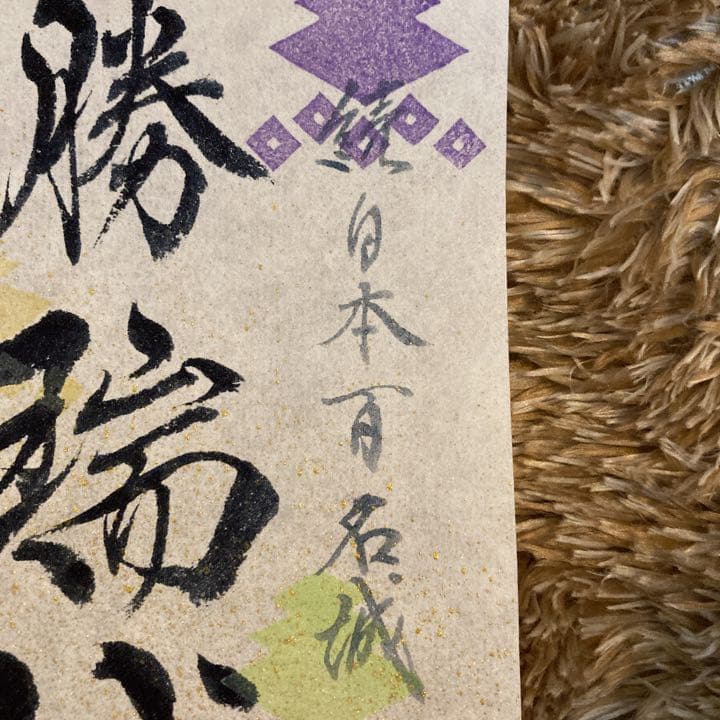 続日本百名城
勝瑞